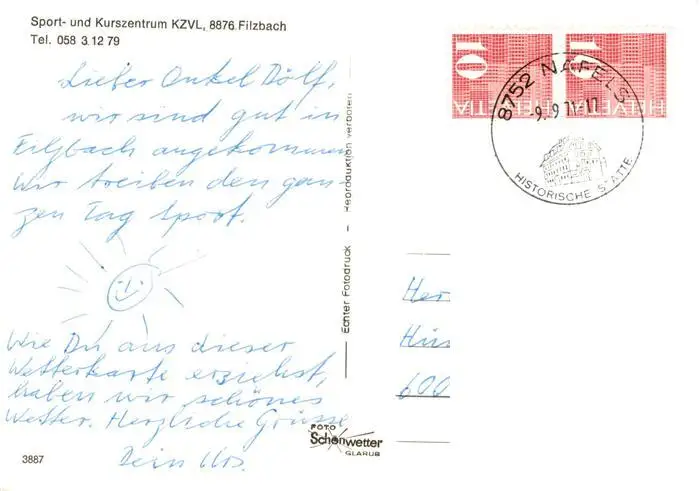 Sport- und Kurszentrum KZVL, 8876 Filzbach
Tel. 058 3.12 79
Lieber Onkel Dölf,
wir sind gut in
Filzbach angekommen.
Wir treiben den gan-
zen Tag Sport.
Wie Du aus dieser
Wetterkarte erziehst,
haben wir schönes
Wetter. Herzliche Grüsse
Dein Urs.
3887
Echter Fotodruck — Reproduktion verboten
FOTO
Schönwetter
GLARUS
10 HELVETIA
10 HELVETIA
8752 NÄFELS
-9.-9 71-17
HISTORISCHE STÄTTE
Her
Hüs
600